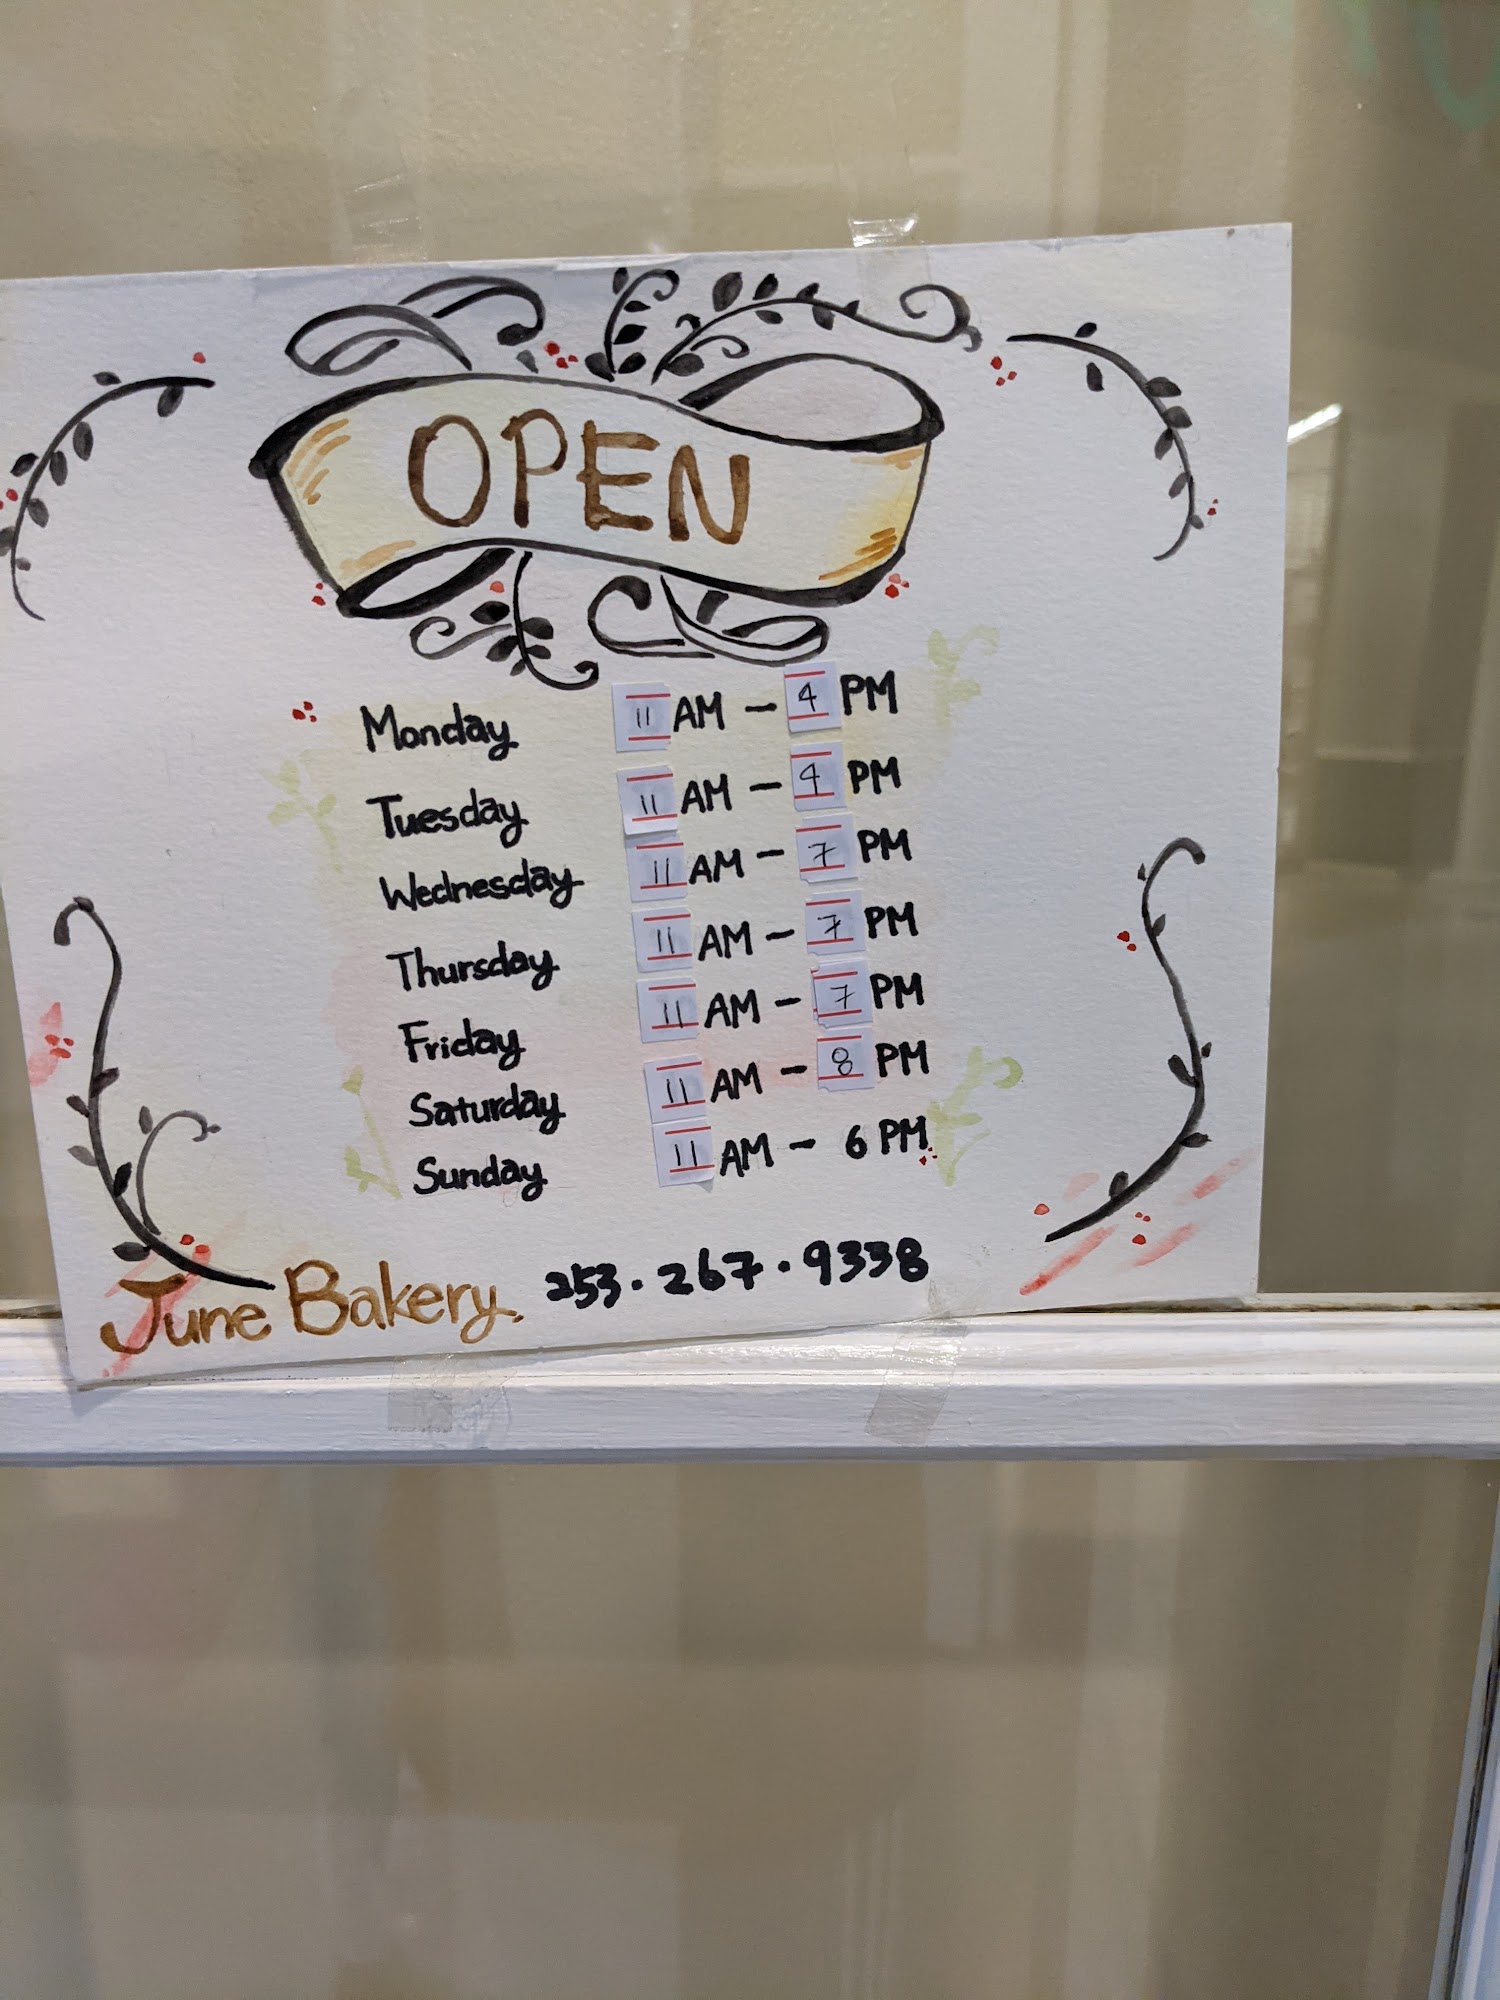 OPEN
Monday 11 AM - 4 PM
Tuesday 11 AM - 4 PM
Wednesday 11 AM - 7 PM
Thursday 11 AM - 7 PM
Friday 11 AM - 7 PM
Saturday 11 AM - 8 PM
Sunday 11 AM - 6 PM
June Bakery. 253.267.9338